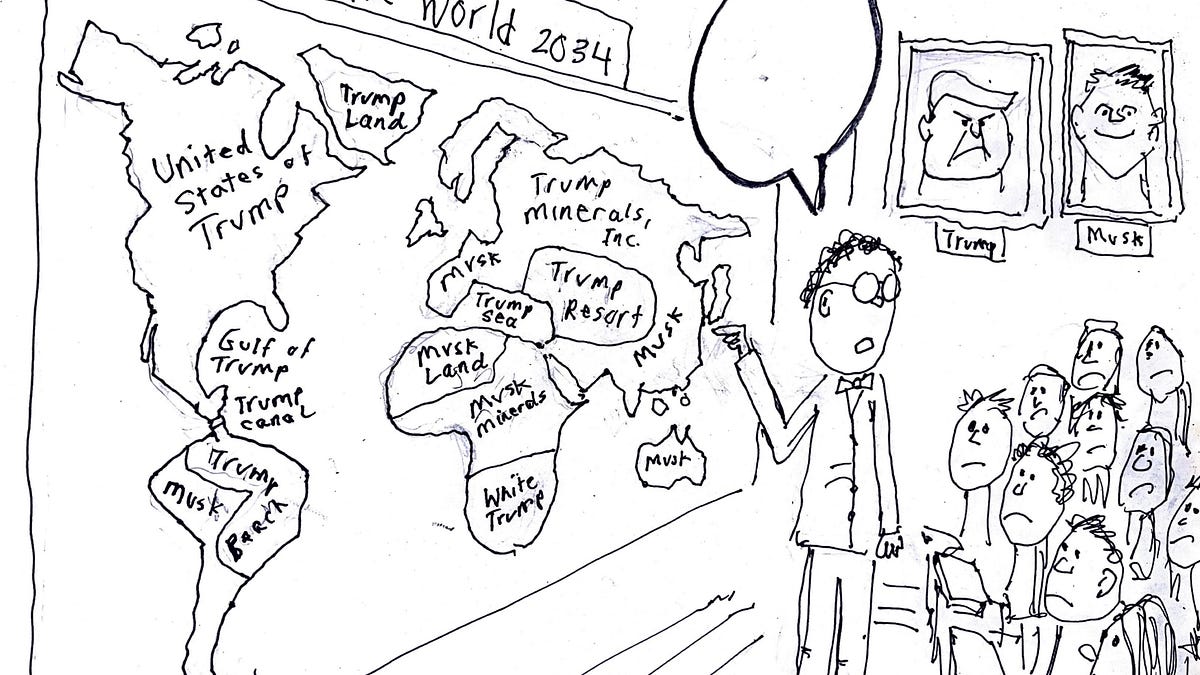 World 2034
Trump
Land
United
States of
Trump
Trump
minerals,
Inc.
Musk
Trump
Sea
Trump
Resort
Musk
Gulf of
Trump
Trump
canal
Musk
Land
Musk
Minerals
Musk
White
Trump
Trump
Musk
Beach
Trump
Musk